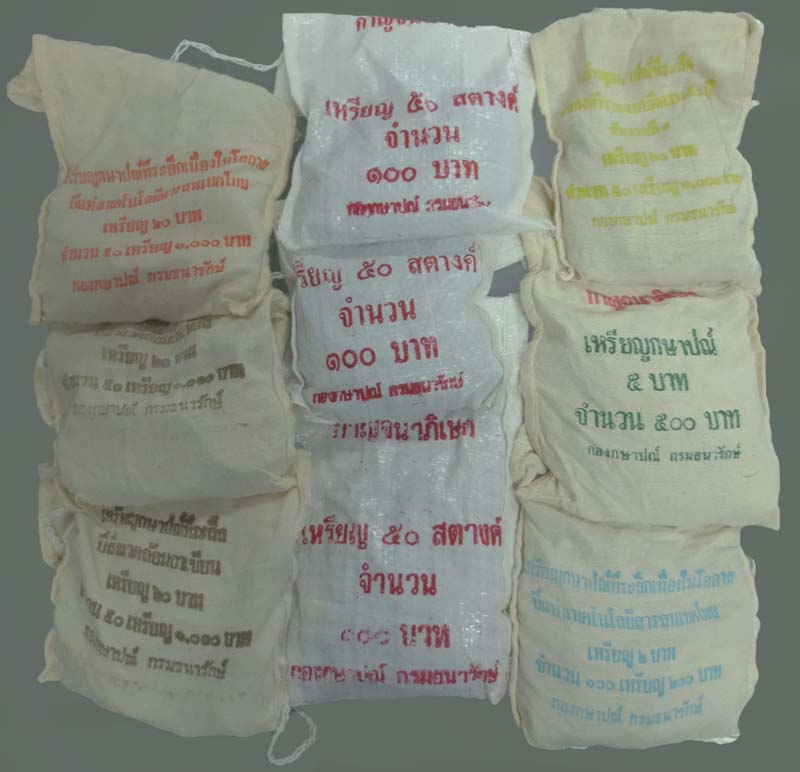 เหรียญกษาปณ์ที่ระลึกเนื่องในโอกาส
ปีแห่งเทคโนโลยีสารสนเทศไทย
เหรียญ ๒๐ บาท
จำนวน ๕๐ เหรียญ ๑,๐๐๐ บาท
กองกษาปณ์ กรมธนารักษ์
เหรียญ ๒๐ บาท
จำนวน ๕๐ เหรียญ ๑,๐๐๐ บาท
กองกษาปณ์ กรมธนารักษ์
เหรียญกษาปณ์ที่ระลึก
ปีสิ่งแวดล้อมอาเซียน
เหรียญ ๒๐ บาท
จำนวน ๕๐ เหรียญ ๑,๐๐๐ บาท
กองกษาปณ์ กรมธนารักษ์
เหรียญ ๕๐ สตางค์
จำนวน
๑๐๐ บาท
กองกษาปณ์ กรมธนารักษ์
เหรียญ ๕๐ สตางค์
จำนวน
๑๐๐ บาท
กองกษาปณ์ กรมธนารักษ์
กาญจนาภิเษก
เหรียญ ๕๐ สตางค์
จำนวน
๑๐๐ บาท
กองกษาปณ์ กรมธนารักษ์
เหรียญกษาปณ์ที่ระลึก
เหรียญ ๒๐ บาท
จำนวน ๕๐ เหรียญ ๑,๐๐๐ บาท
กองกษาปณ์ กรมธนารักษ์
กาญจนาภิเษก
เหรียญกษาปณ์
๕ บาท
จำนวน ๕๐๐ บาท
กองกษาปณ์ กรมธนารักษ์
เหรียญกษาปณ์ที่ระลึกเนื่องในโอกาส
ปีแห่งเทคโนโลยีสารสนเทศไทย
เหรียญ ๒ บาท
จำนวน ๑๐๐ เหรียญ ๒๐๐ บาท
กองกษาปณ์ กรมธนารักษ์